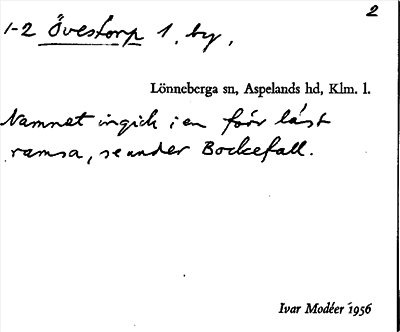 2
1-2 Övestorp 1, by,
Lönneberga sn, Aspelands hd, Klm. l.
Namnet ingick i en förr läst
ramsa, se under Bockefall.
Ivar Modéer 1956